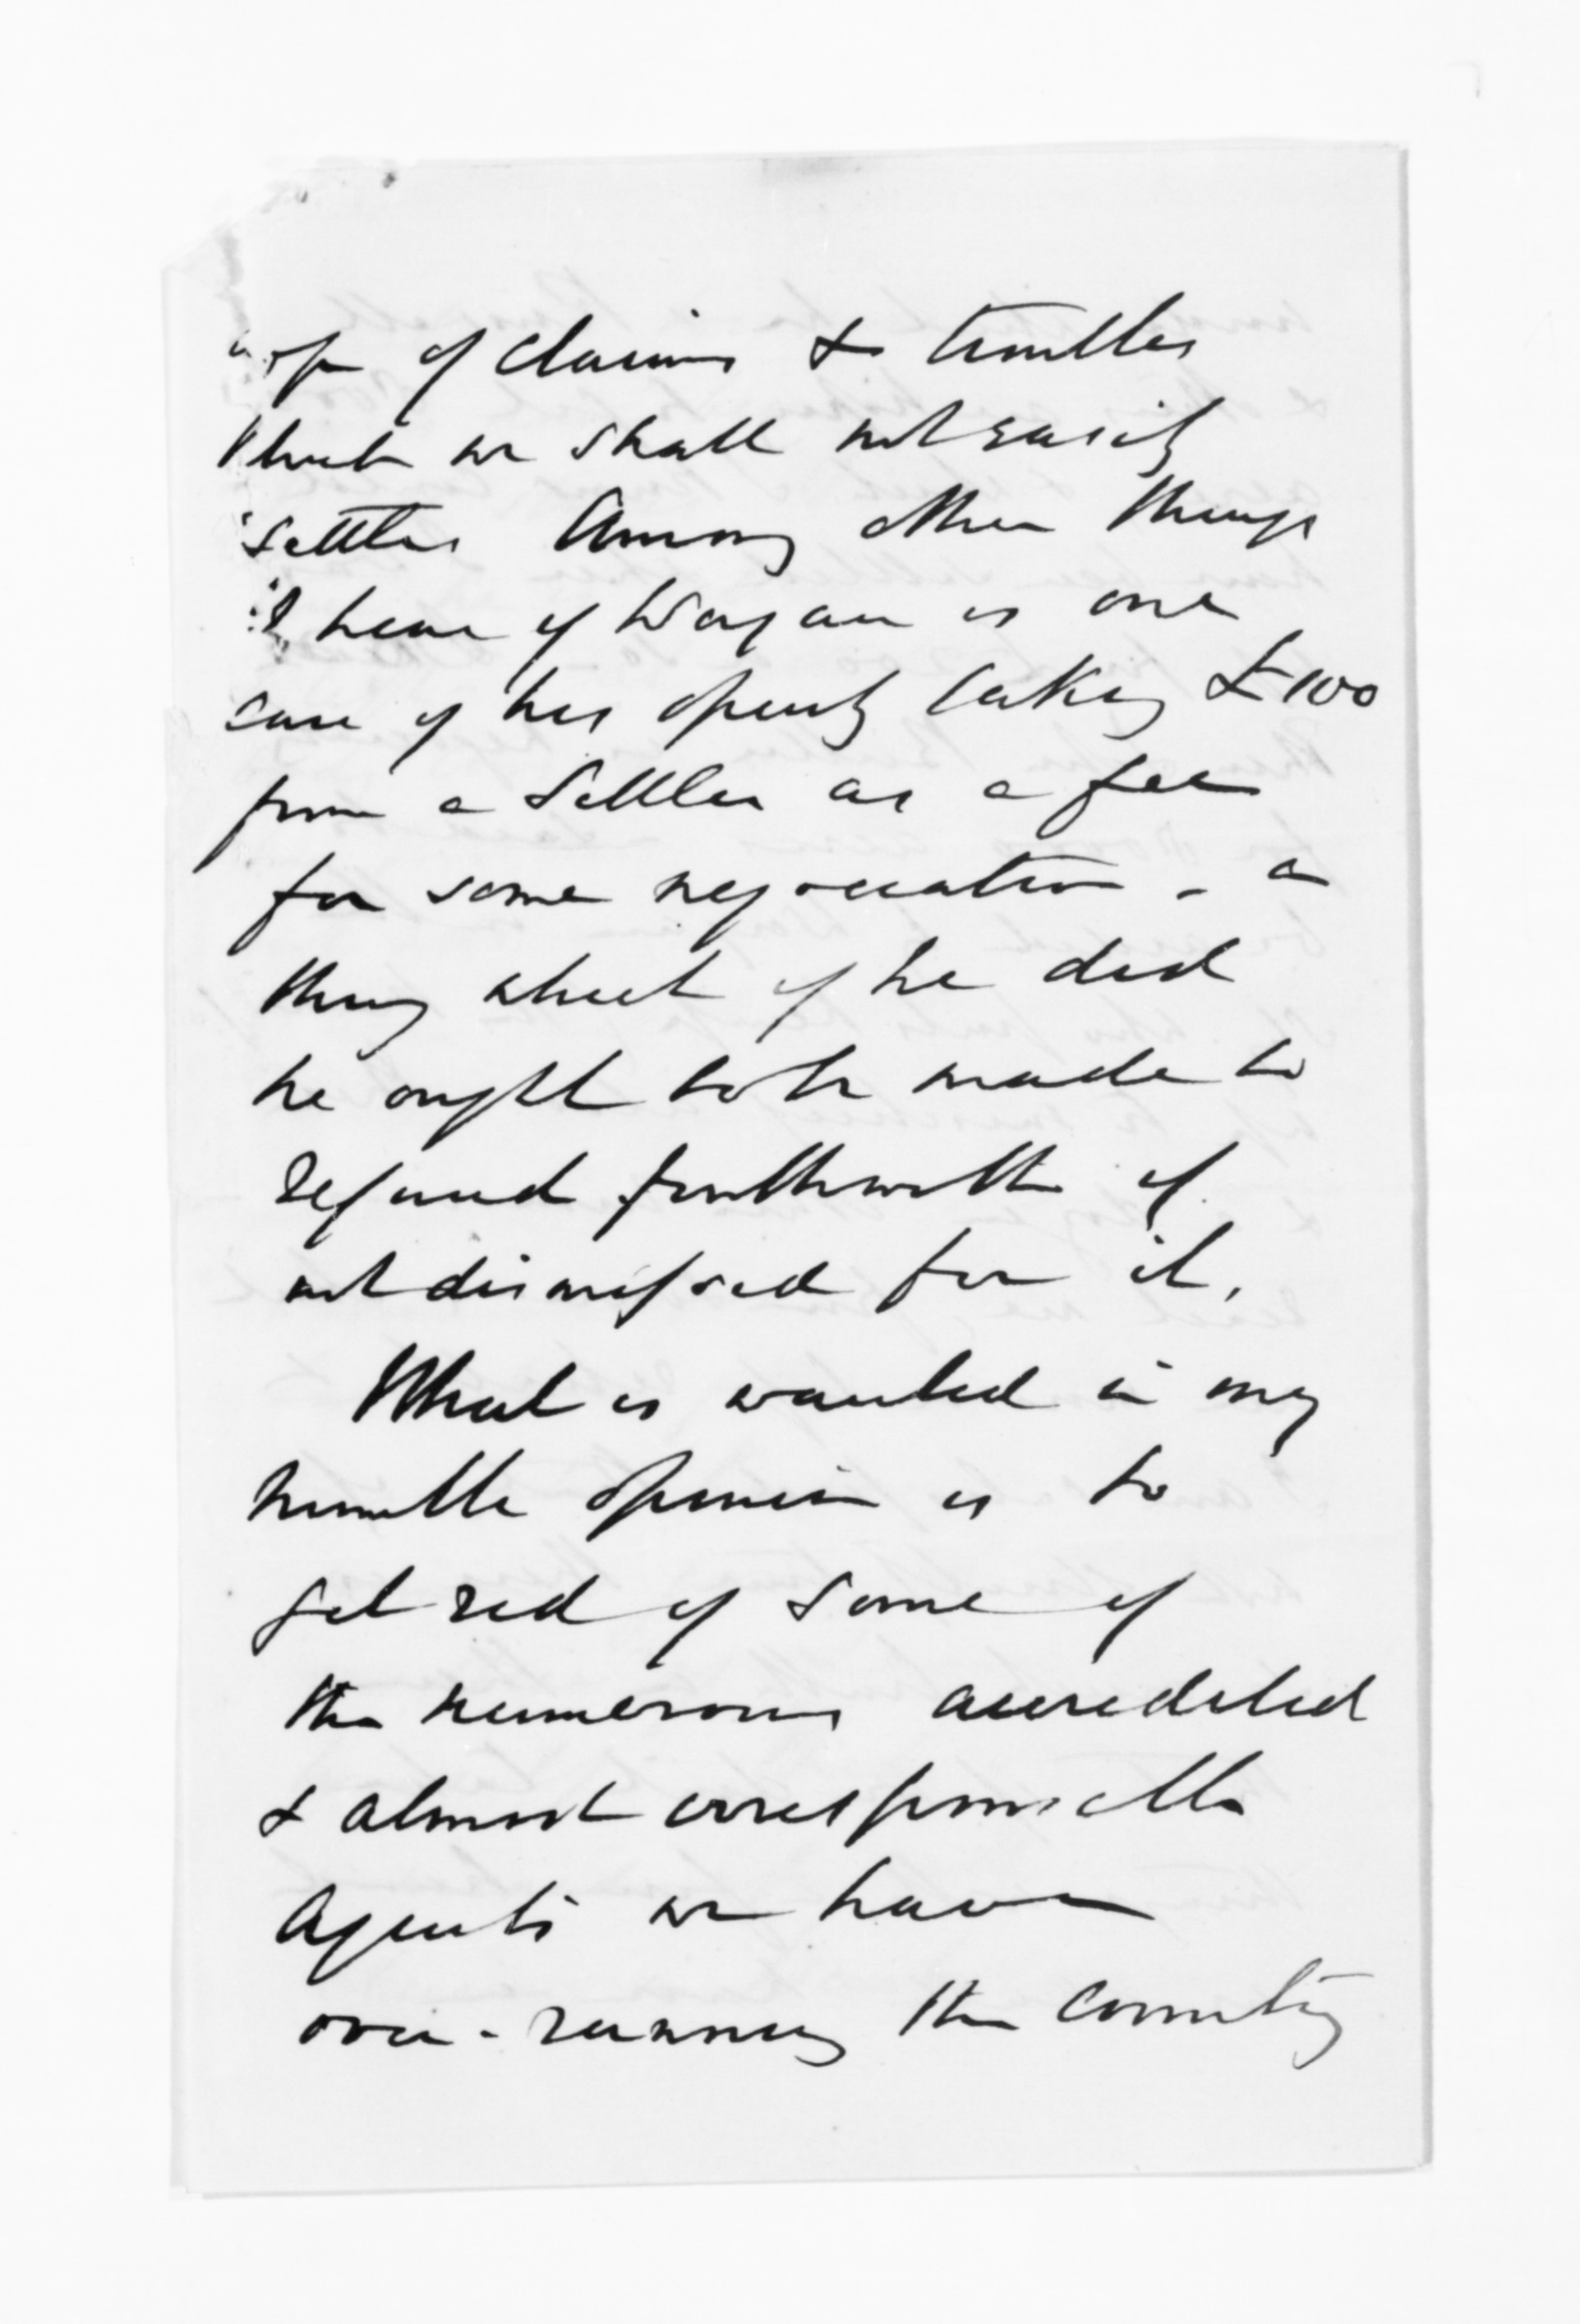 crop of claims & troubles
which we shall not easily
settle. Among other things
I hear of Worgan is one
case of his openly taking £100
from a settler as a fee
for some negociation - a
thing which if he did
he ought to be made to
refund forthwith if
not dismissed for it.
What is wanted in my
humble opinion is to
get rid of some of
the numerous accredited
& almost irresponsible
Agents we have
over-running the country